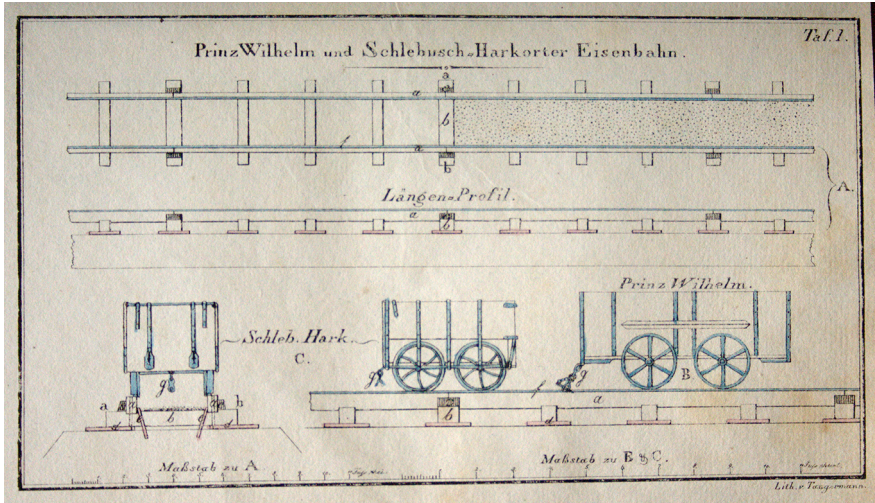 Taf. 1.
Prinz Wilhelm und Schlebusch-Harkorter Eisenbahn.
a
a
b
f
a
b
A.
Längen-Profil.
a
b
Prinz Wilhelm.
Schleb. Hark.
C.
g
g
B
f
a
a
b
b
b
d
d
d
Maßstab zu A
Maßstab zu B & C.
Lith. v. Taugermann.